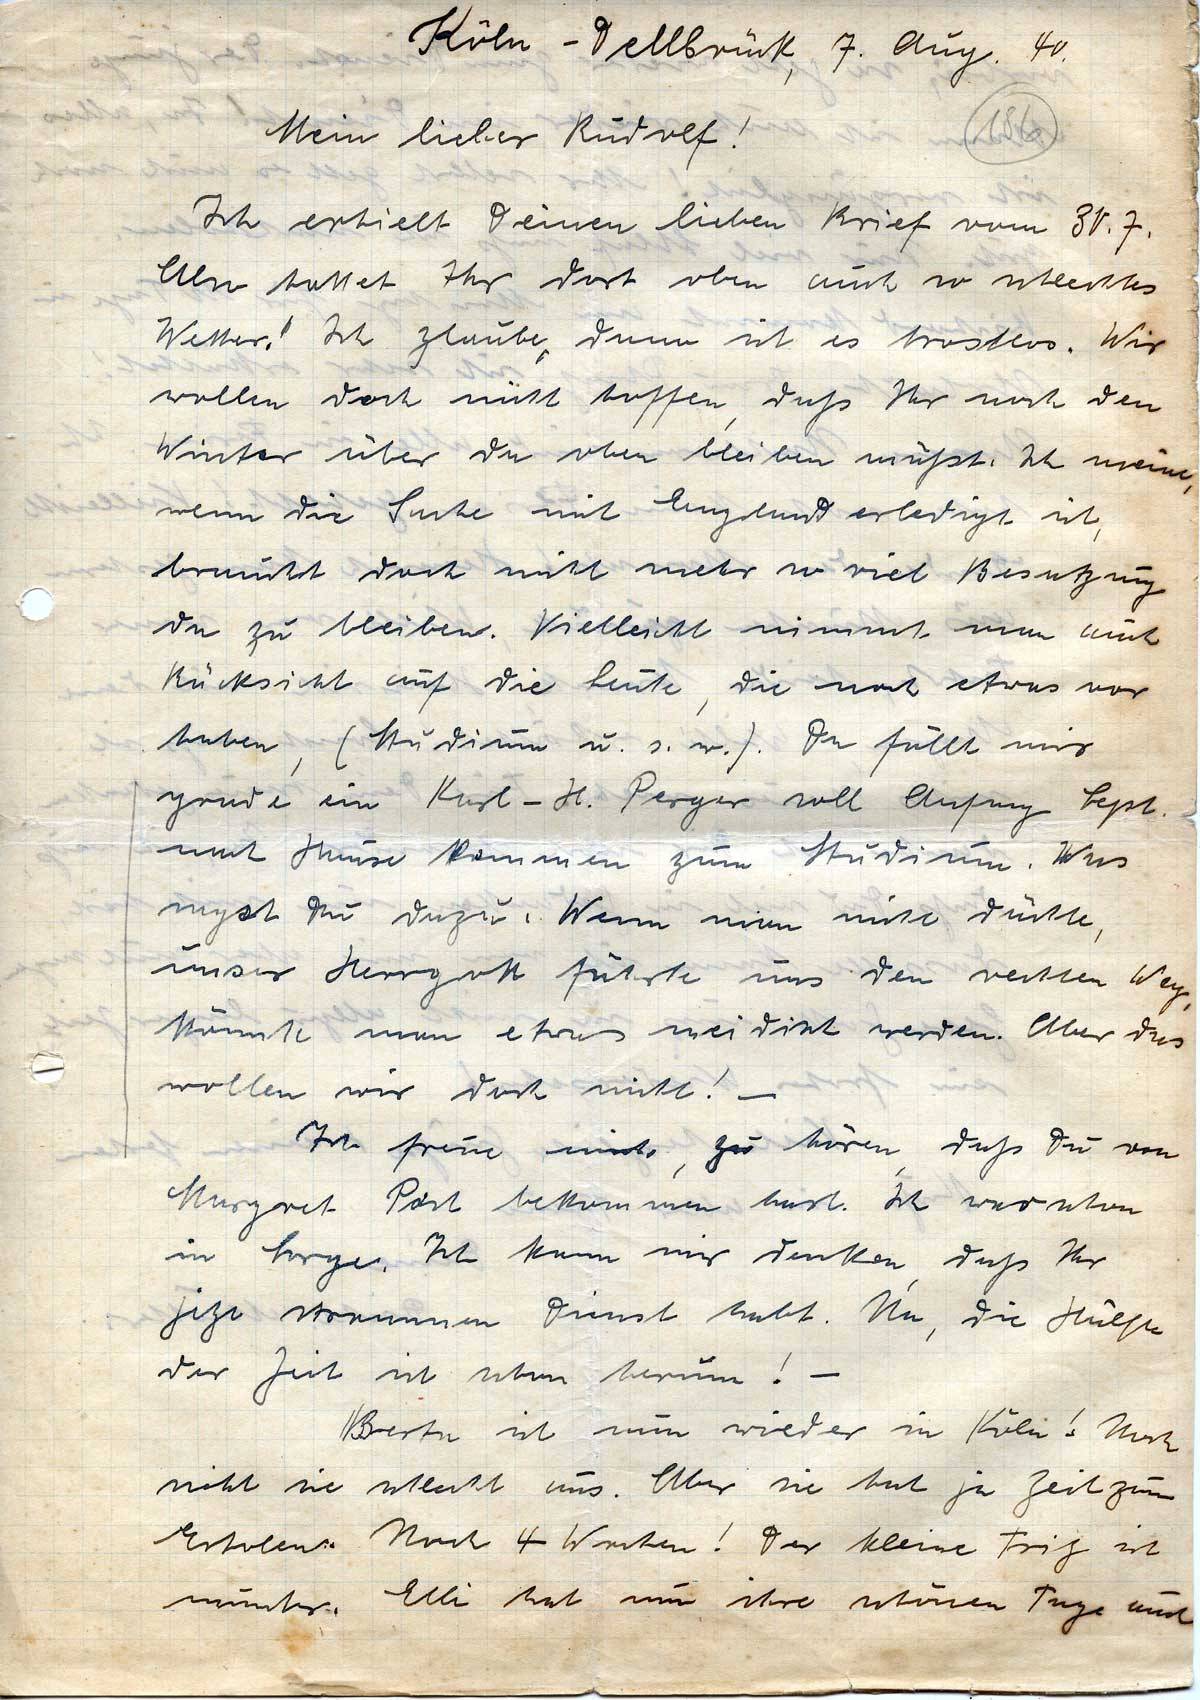 Köln - Dellbrück, 7. Aug. 40.
186
Mein lieber Rudolf!
Ich erhielt Deinen lieben Brief vom 30.7.
Also hattet Ihr dort oben auch so schlechtes
Wetter! Ich glaube, dann ist es trostlos. Wir
wollen doch nicht hoffen, daß Ihr noch den
Winter über da oben bleiben müßt. Ich meine,
wenn die Sache mit England erledigt ist,
braucht doch nicht mehr so viel Besatzung
da zu bleiben. Vielleicht nimmt man auch
Rücksicht auf die Leute, die noch etwas vor
haben, (Studium u. s. w.). Da fällt mir
grade ein Karl-H. Perger soll Anfang Sept.
nach Hause kommen zum Studium. Was
sagst Du dazu. Wenn man nicht dächte,
unser Herrgott führte uns den rechten Weg,
könnte man etwas neidisch werden. Aber das
wollen wir doch nicht! —
Ich freue mich, zu hören, daß Du von
Margret Post bekommen hast. Ich war schon
in Sorge. Ich kann mir denken, daß Ihr
jetzt strammen Dienst habt. Na, die Hälfte
der Zeit ist schon herum! —
Berta ist nun wieder in Köln! Noch
sieht sie schlecht aus. Aber sie hat ja Zeit zum
Erholen. Noch 4 Wochen! Der kleine Fritz ist
munter. Elli hat nun ihre schönen Tage auch